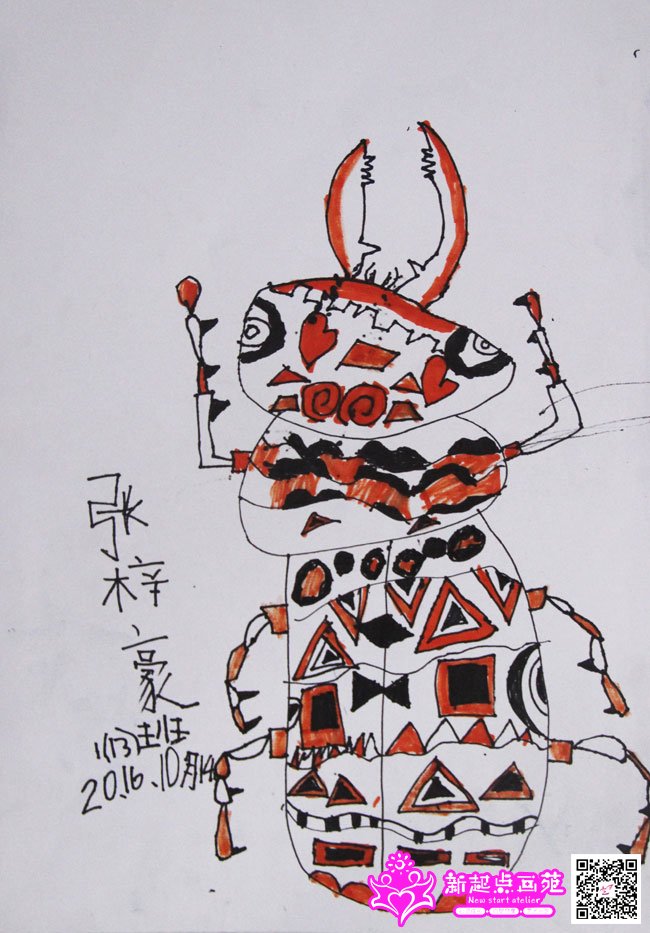 张
梓
豪
1(13)班
2016.10月14
新起点画苑
New start atelier